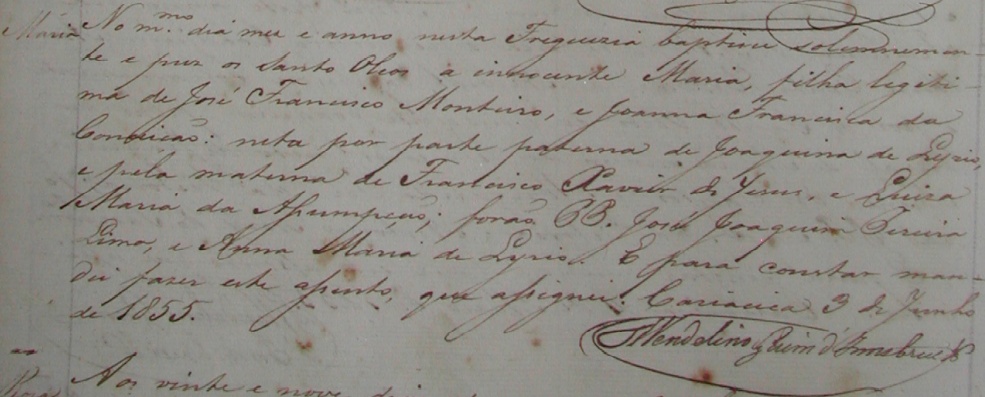 Maria No m.mo dia mez e anno nesta Freguezia baptizei solemnemen-
te e puz os Santo Oleos a innocente Maria, filha legiti-
ma de José Francisco Monteiro, e Joanna Francisca da
Conceicão: neta por parte paterna de Joaquina de Lyrio,
e pela materna de Francisco Xavier de Jesus, e Luiza
Maria da Assumpção; forão PP. José Joaquim Pereira
Lima, e Anna Maria de Lyrio. E para constar man-
dei fazer este assento, que assignei. Cariacica 3 de Junho
de 1855.
Wendelino
Aos vinte e nove